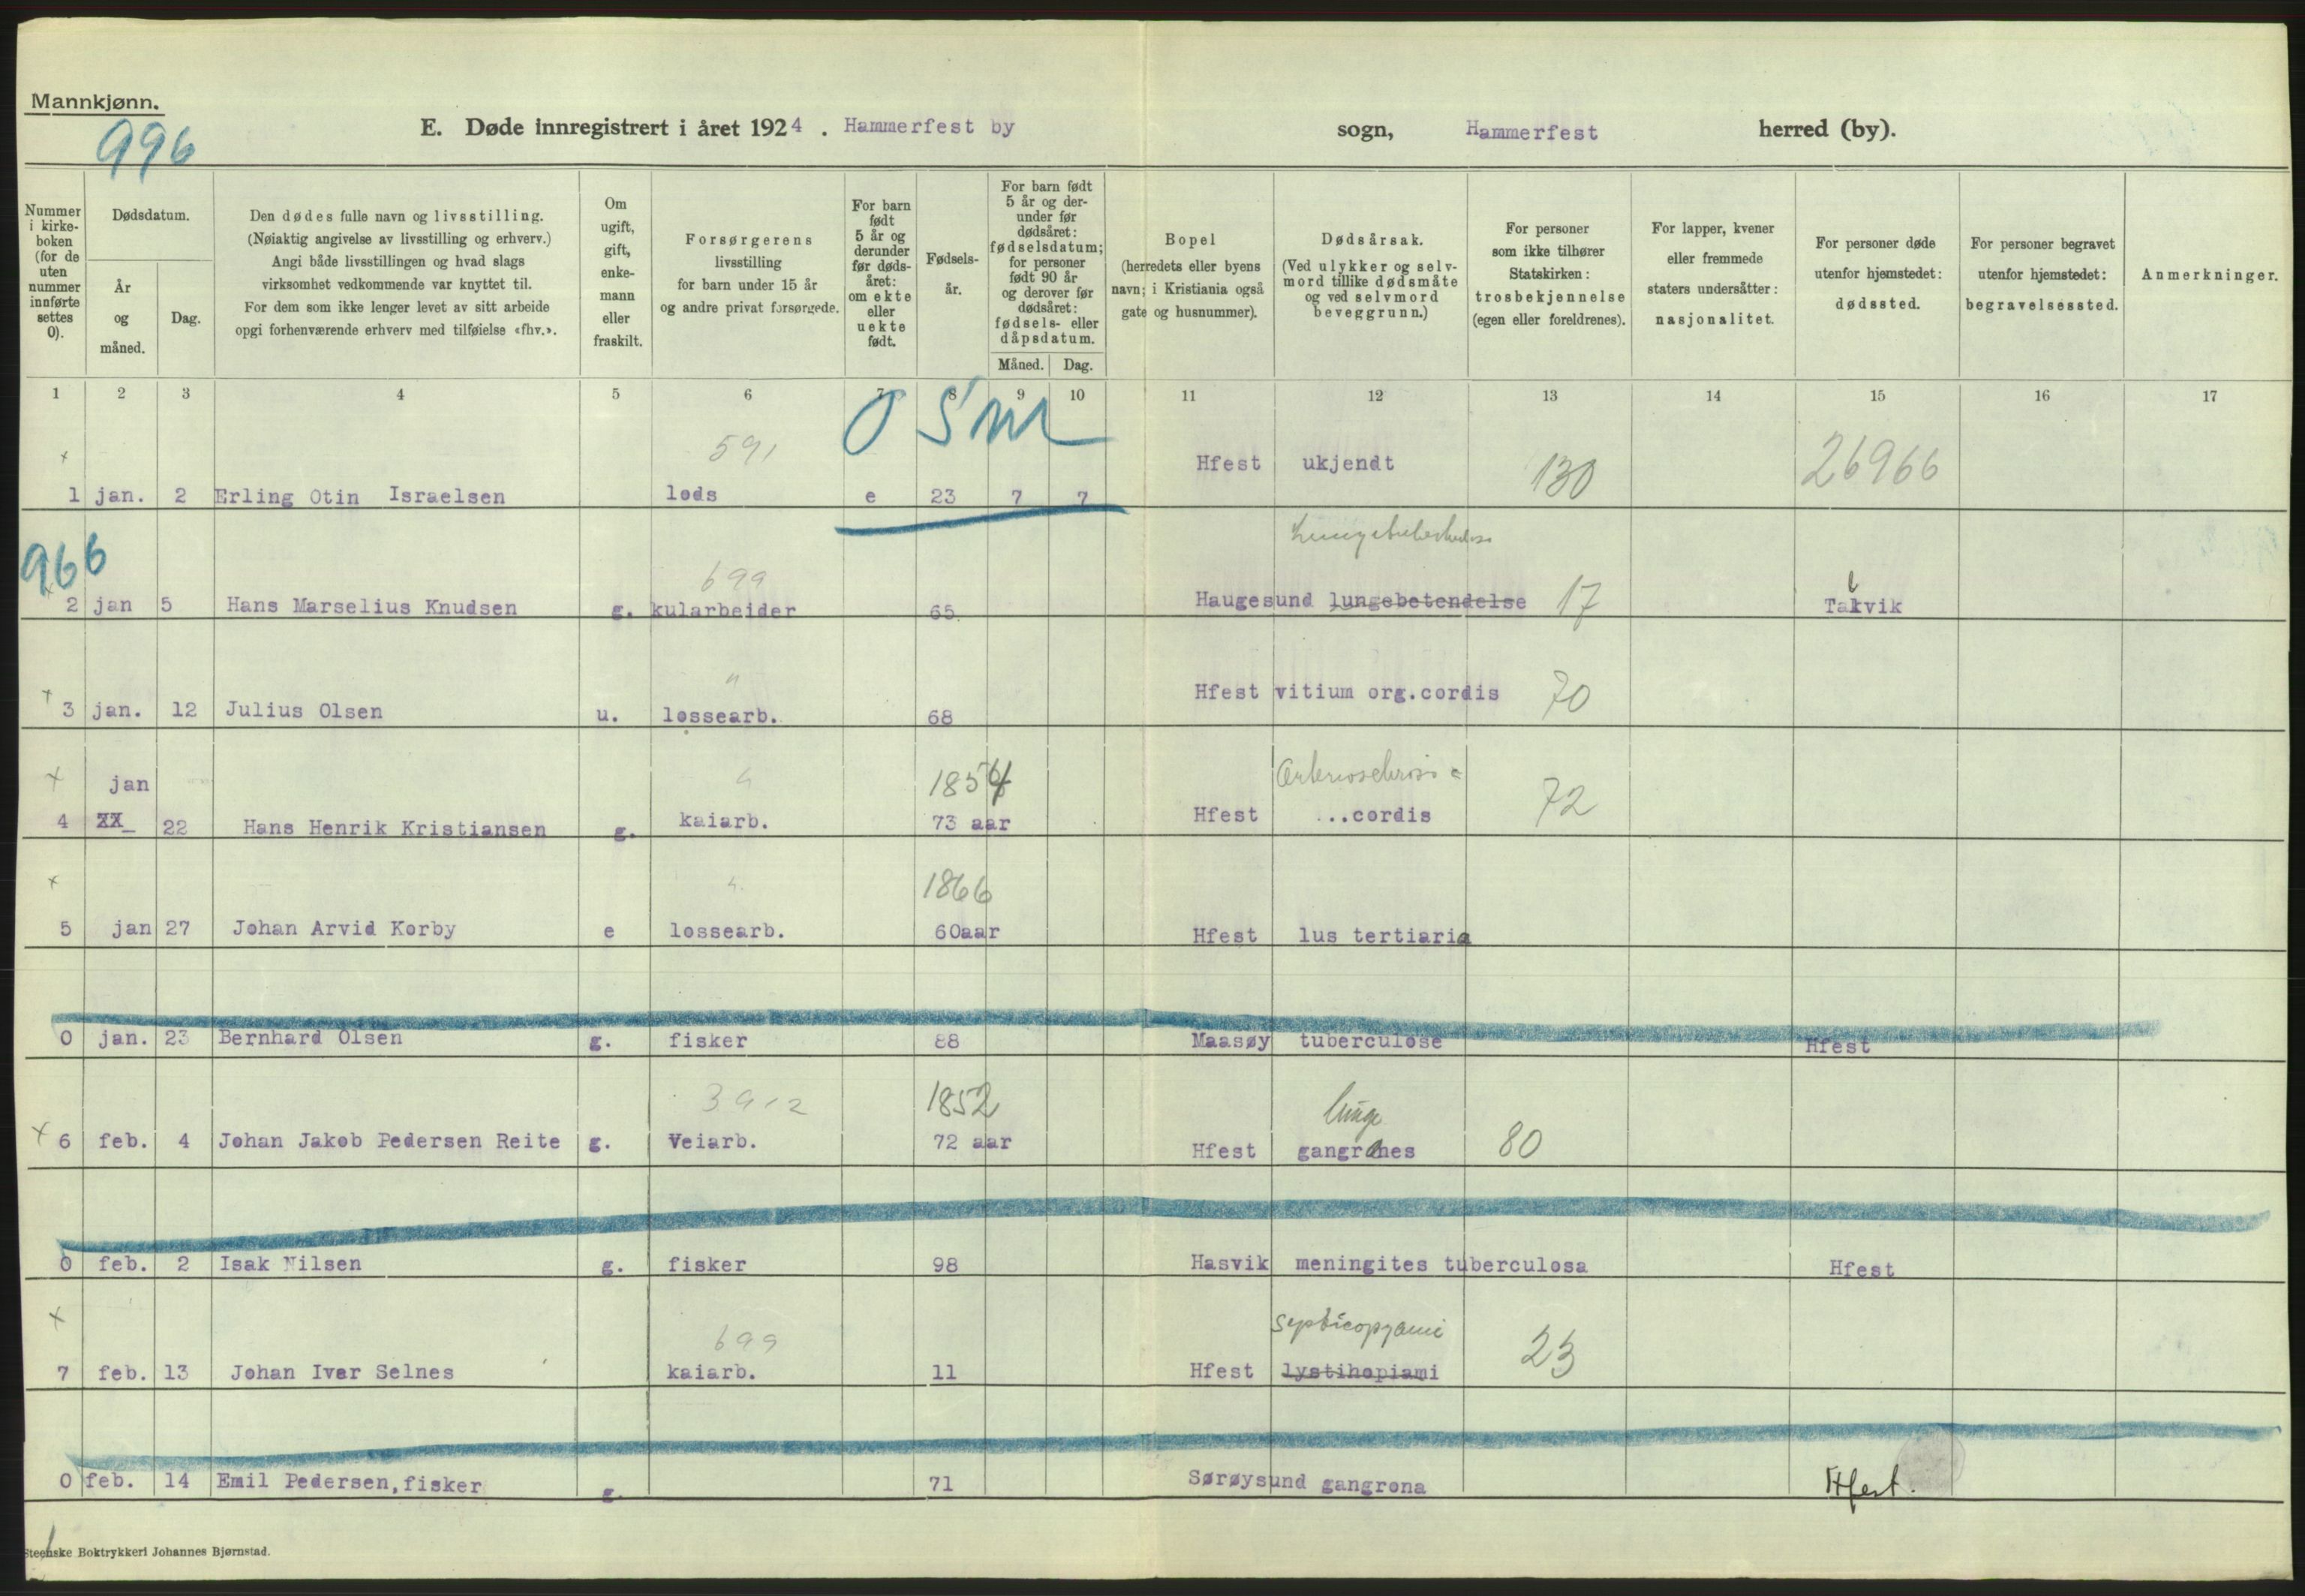 Mannkjønn.
996
E. Døde innregistrert i året 1924 . Hammerfest by sogn, Hammerfest herred (by).
Nummer i kirke-boken (for de uten nummer innførte settes 0).
Dødsdatum.
År og måned.
Dag.
Den dødes fulle navn og livsstilling.
(Nøiaktig angivelse av livsstilling og erhverv.)
Angi både livsstillingen og hvad slags
virksomhet vedkommende var knyttet til.
For dem som ikke lenger levet av sitt arbeide
opgi forhenværende erhverv med tilføielse «fhv.».
Om ugift, gift, enke-mann eller fraskilt.
Forsørgerens
livsstilling
for barn under 15 år
og andre privat forsørgede.
For barn født 5 år og derunder før døds-året: om ekte eller uekte født.
Fødsels-år.
For barn født 5 år og der-under før dødsåret: fødselsdatum; for personer født 90 år og derover før dødsåret: fødsels- eller dåpsdatum.
Måned. Dag.
Bopel
(herredets eller byens
navn; i Kristiania også
gate og husnummer).
Dødsårsak.
(Ved ulykker og selv-
mord tillike dødsmåte
og ved selvmord
beveggrunn.)
For personer
som ikke tilhører
Statskirken:
trosbekjennelse
(egen eller foreldrenes).
For lapper, kvener
eller fremmede
staters undersåtter:
nasjonalitet.
For personer døde
utenfor hjemstedet:
dødssted.
For personer begravet
utenfor hjemstedet:
begravelsessted.
Anmerkninger.
1 2 3 4 5 6 7 8 9 10 11 12 13 14 15 16 17
591 0 5 m
1 jan. 2 Erling Otin Israelsen løds e 23 7 7 Hfest ukjendt 130 26966
966
699 Lungetuberkulose
2 jan 5 Hans Marselius Knudsen g. kularbeider 65. Haugesund lungebetendelse 17 Talvik
3 jan. 12 Julius Olsen u. lossearb. 68 Hfest vitium org.cordis 70
jan 1854 Arteriosclerosis
4 XX_ 22 Hans Henrik Kristiansen g. kaiarb. 73 aar Hfest ...cordis 72
1866
5 jan 27 Johan Arvid Korby e lossearb. 60aar Hfest lus tertiaria
0 jan. 23 Bernhard Olsen g. fisker 88 Maasøy tuberculose Hfest
3912 1852 lunge
6 feb. 4 Johan Jakob Pedersen Reite g. Veiarb. 72 aar Hfest gangrønes 80
0 feb. 2 Isak Nilsen g. fisker 98 Hasvik meningites tuberculosa Hfest
699 septicopyami
7 feb. 13 Johan Iver Selnes kaiarb. 11 Hfest lystihopiami 23
0 feb. 14 Emil Pedersen, fisker g. 71 Sørøysund gangrøna Hfest.
Steenske Boktrykkeri Johannes Bjørnstad.